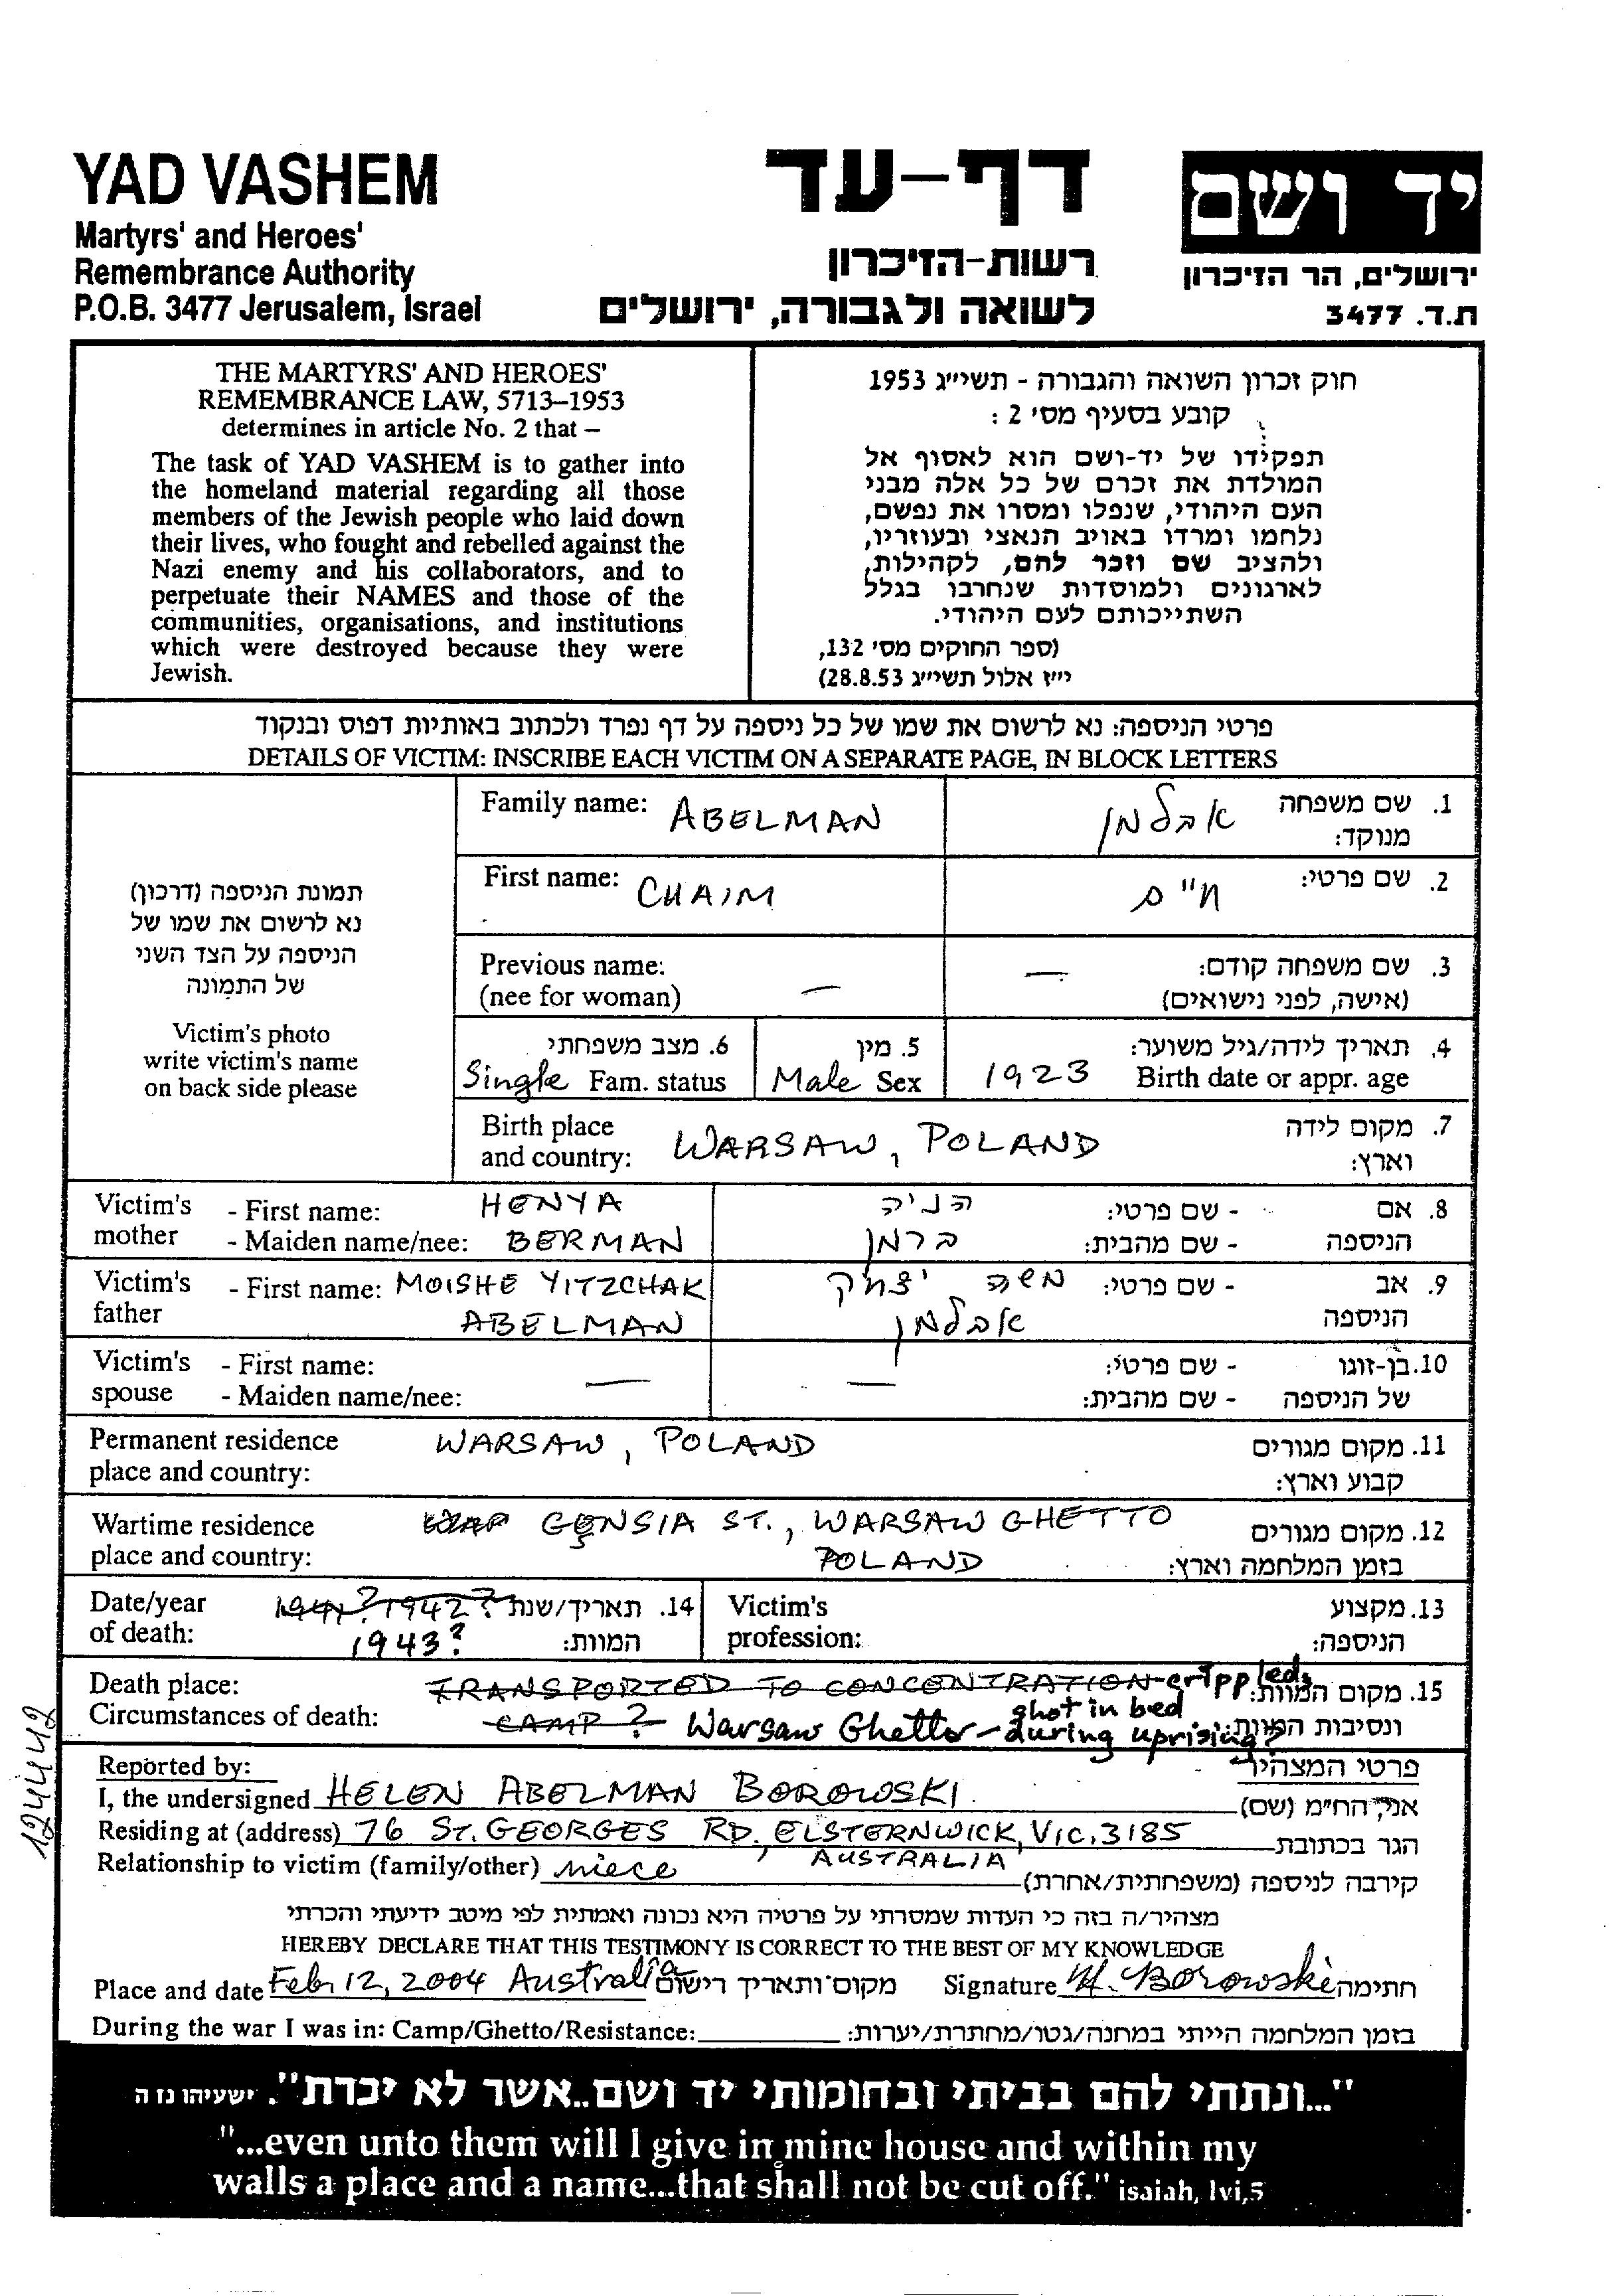 YAD VASHEM
Martyrs' and Heroes'
Remembrance Authority
P.O.B. 3477 Jerusalem, Israel
דף-עד
רשות-הזיכרון
לשואה ולגבורה, ירושלים
יד ושם
ירושלים, הר הזיכרון
ת.ד. 3477
THE MARTYRS' AND HEROES'
REMEMBRANCE LAW, 5713–1953
determines in article No. 2 that –
The task of YAD VASHEM is to gather into
the homeland material regarding all those
members of the Jewish people who laid down
their lives, who fought and rebelled against the
Nazi enemy and his collaborators, and to
perpetuate their NAMES and those of the
communities, organisations, and institutions
which were destroyed because they were
Jewish.
חוק זכרון השואה והגבורה - תשי״ג 1953
קובע בסעיף מס׳ 2 :
תפקידו של יד-ושם הוא לאסוף אל
המולדת את זכרם של כל אלה מבני
העם היהודי, שנפלו ומסרו את נפשם,
נלחמו ומרדו באויב הנאצי ובעוזריו,
ולהציב שם וזכר להם, לקהילות,
לארגונים ולמוסדות שנחרבו בגלל
השתייכותם לעם היהודי.
(ספר החוקים מס׳ 132,
י״ז אלול תשי״ג 28.8.53)
פרטי הניספה: נא לרשום את שמו של כל ניספה על דף נפרד ולכתוב באותיות דפוס ובנקוד
DETAILS OF VICTIM: INSCRIBE EACH VICTIM ON A SEPARATE PAGE, IN BLOCK LETTERS
תמונת הניספה (דרכון)
נא לרשום את שמו של
הניספה על הצד השני
של התמונה
Victim's photo
write victim's name
on back side please
Family name: ABELMAN אבלמן 1. שם משפחה
מנוקד:
First name: CHAIM חיים 2. שם פרטי:
Previous name: — — 3. שם משפחה קודם:
(nee for woman) (אישה, לפני נישואים)
6. מצב משפחתי 5. מין 4. תאריך לידה/גיל משוער:
Single Fam. status Male Sex 1923 Birth date or appr. age
Birth place WARSAW, POLAND 7. מקום לידה
and country: וארץ:
Victim's - First name: HENYA הניה - שם פרטי: 8. אם
mother - Maiden name/nee: BERMAN ברמן - שם מהבית: הניספה
Victim's - First name: MOISHE YITZCHAK משה יצחק - שם פרטי: 9. אב
father ABELMAN אבלמן הניספה
Victim's - First name: — — - שם פרטי: 10. בן-זוגו
spouse - Maiden name/nee: - שם מהבית: של הניספה
Permanent residence WARSAW, POLAND 11. מקום מגורים
place and country: קבוע וארץ:
Wartime residence GENSIA ST., WARSAW GHETTO 12. מקום מגורים
place and country: POLAND בזמן המלחמה וארץ:
Date/year 1941? 1942? 14. תאריך/שנת Victim's 13. מקצוע
of death: 1943? המוות: profession: הניספה:
Death place: TRANSPORTED TO CONCENTRATION crippled, 15. מקום המוות:
Circumstances of death: CAMP? Warsaw Ghetto - shot in bed during uprising? ונסיבות המוות:
Reported by: פרטי המצהיר
I, the undersigned HELEN ABELMAN BOROWSKI אני, הח״מ (שם)
Residing at (address) 76 ST. GEORGES RD, ELSTERNWICK, VIC, 3185 הגר בכתובת
AUSTRALIA
Relationship to victim (family/other) niece קירבה לניספה (משפחתית/אחרת)
מצהיר/ה בזה כי העדות שמסרתי על פרטיה היא נכונה ואמתית לפי מיטב ידיעתי והכרתי
HEREBY DECLARE THAT THIS TESTIMONY IS CORRECT TO THE BEST OF MY KNOWLEDGE
Place and date Feb, 12, 2004 Australia מקום ותאריך רישום Signature H. Borowski חתימה
During the war I was in: Camp/Ghetto/Resistance: בזמן המלחמה הייתי במחנה/גטו/מחתרת/יערות:
"...ונתתי להם בביתי ובחומותי יד ושם..אשר לא יכרת". ישעיהו נז ה
"...even unto them will I give in mine house and within my
walls a place and a name...that shall not be cut off." isaiah, lvi,5
124442